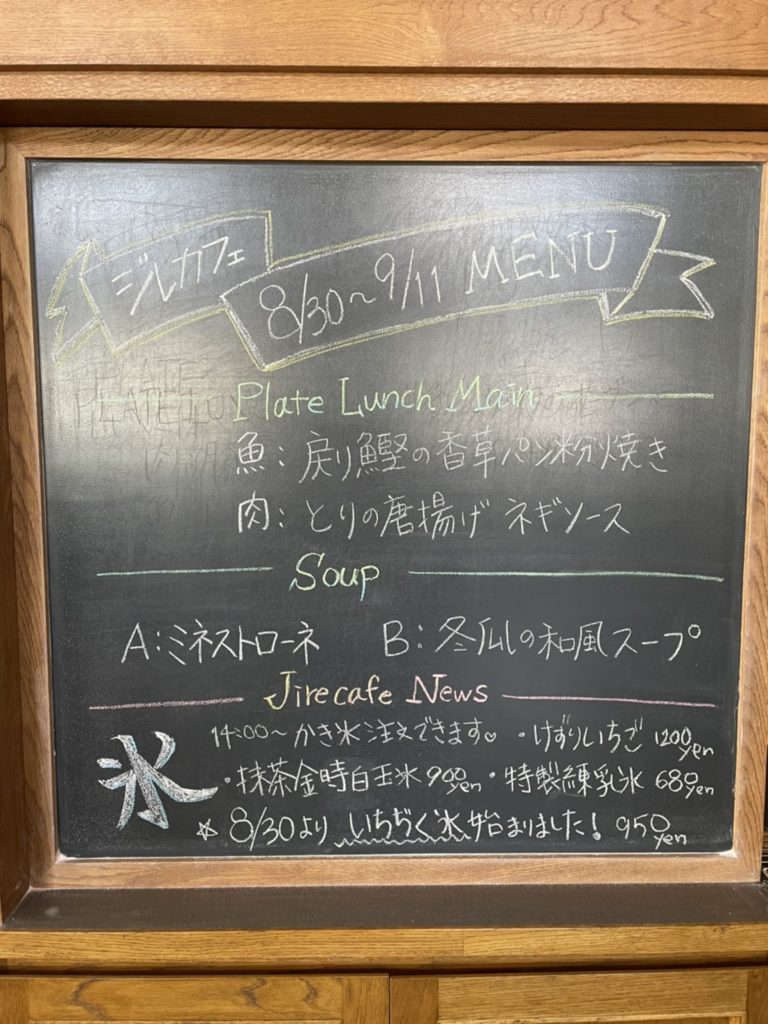 ジルカフェ
8/30〜9/11 MENU
Plate Lunch Main
魚：戻り鰹の香草パン粉焼き
肉：とりの唐揚げ ネギソース
Soup
A：ミネストローネ B：冬瓜の和風スープ
Jirecafe News
氷
14:00〜 かき氷注文できます♡ ・けずりいちご 1200yen
・抹茶金時白玉氷 900yen ・特製練乳氷 680yen
☆ 8/30より いちぢく氷始まりました！ 950yen